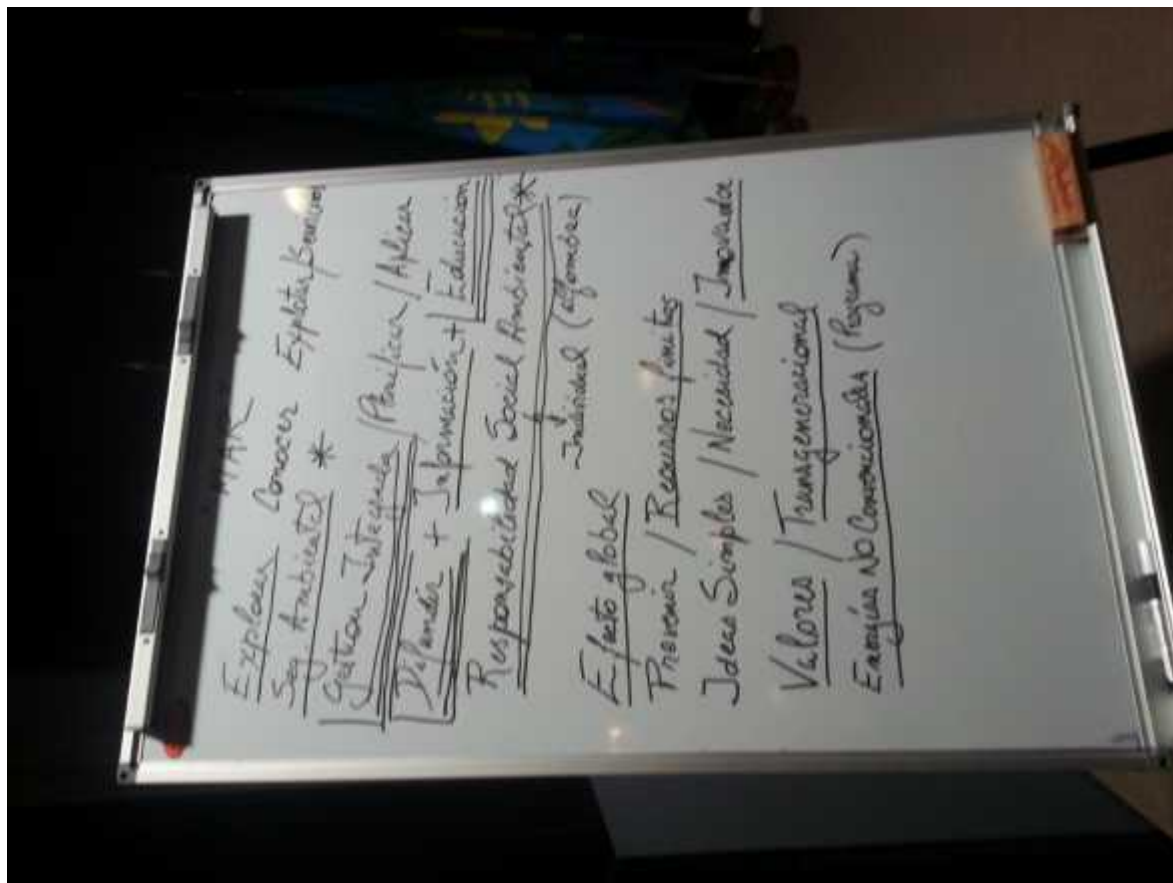 MAR
Explorar Conocer Explotar/Beneficios
Seg. Ambiental *
Gestion Integrada / Planificar / Aplicar
Difundir + Información + / Educación
Responsabilidad Social Ambiental *
Individual (alfombra)
Efecto global
Prevenir / Recursos finitos
Ideas Simples / Necesidad / Innovador
Valores / Transgeneracional
Energías No Convencionales